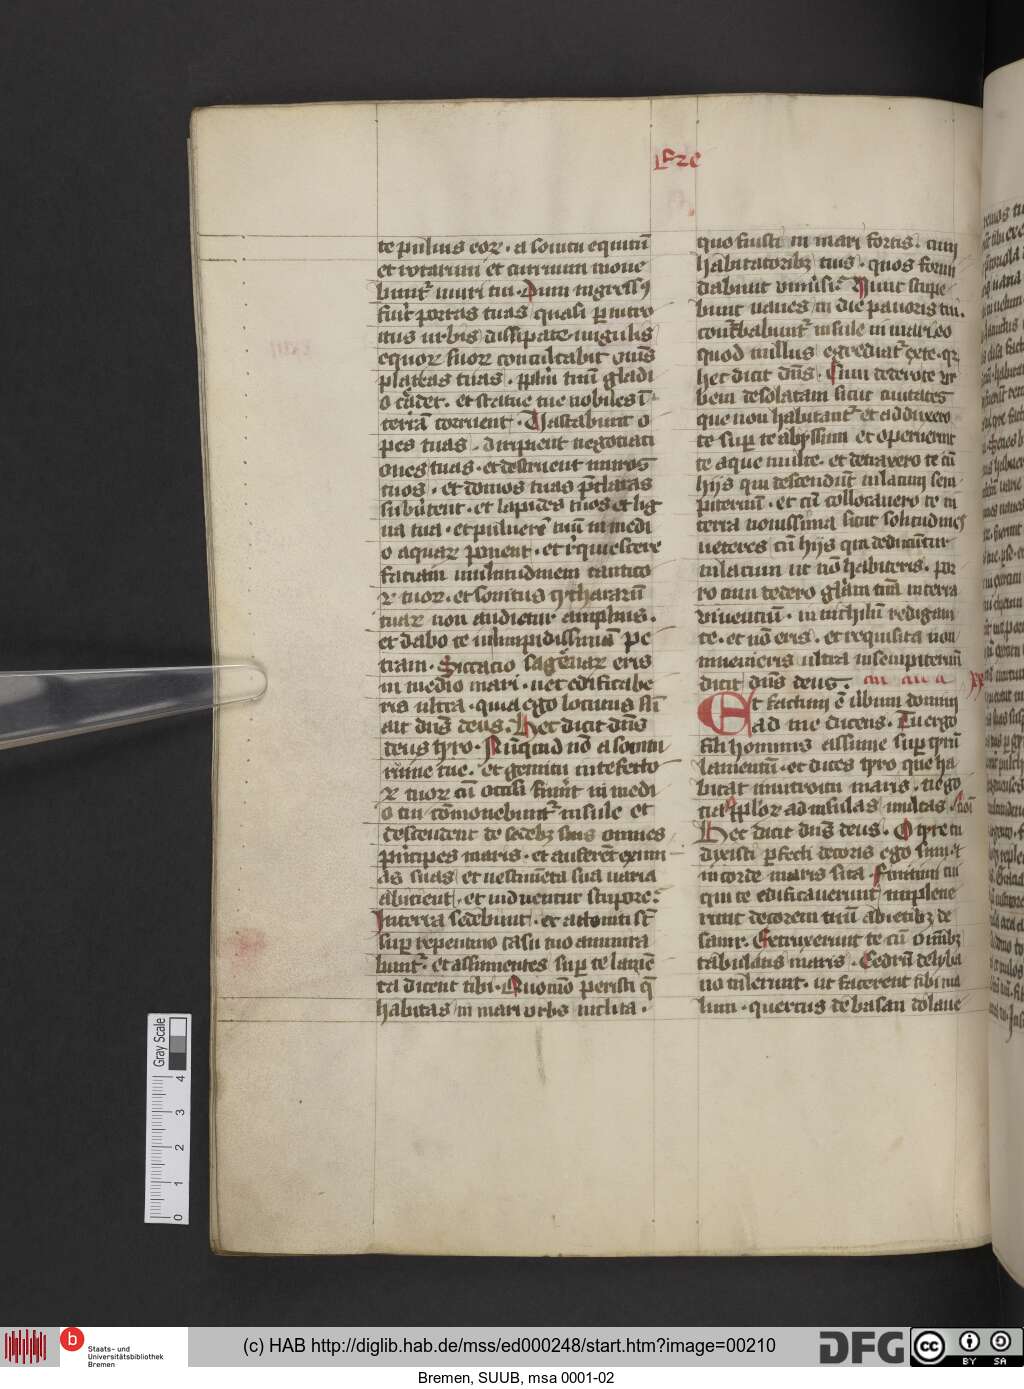 te puluis eoꝝ · a sonitu equitū
et rotarum et curruum moue
bunt᷑ muri tui · Dum ingressꝰ
fu͛it portas tuas quasi ꝑ intro
itus urbis dissipate ungulis
equoꝝ suoꝝ conculcabit om̄s
plateas tuas · pplm̄ tuū gladi
o cēdet · et statue tue nobiles ī
terrā corruent · Uastabunt o
pes tuas · diripient negotiati
ones tuas · et destruent muros
tuos · et domos tuas p̄claras
subu͛tent · et lapides tuos et lig
na tua · et puluerē tuū in medi
o aquaꝝ ponent · et
faciam multitudinem cantico
ꝝ tuoꝝ · et sonitus cythararū
tuaꝝ non audietur amplius ·
et dabo te in limpidissimā pe
tram · Siccatio sagenaꝝ eris
in medio mari · nec edificabe
ris ultra · quia ego locutus sū
ait dn̄s deus · Hec dicit dn̄s
deus tyro · Nūquid nō a sonitu
ruine tue · et gemitu interfecto
ꝝ tuoꝝ cū occisi fu͛int in medi
o tui cōmouebunt᷑ insule et
descendent de sedibꝫ suis omnes
pͥncipes maris · et auferēt exuui
as suas et uestimēta sua uaria
abicient · et induentur stupore ·
In terra sedebunt · et attoniti
suꝑ repentino casu tuo ammira
bunt᷑ · et assumentes suꝑ te lamē
ta dicent tibi · Quomō peristi q̄
habitas in mari urbs inclita ·
quo fuisti in mari fortis · cum
habitatoribꝫ tuis · quos formi
dabant uniu͛si · Nunc stupe
bunt naues in die pauoris tui ·
conturbabunt᷑ insule in mari eo
quod nullus egrediat᷑ ex te · qꝛ
hec dicit dn̄s · Cum dedero te ur
bem desolatam sicut ciuitates
que non habitant᷑ et adduxero
te suꝑ te abyssum et operuerint
te aque multe · et detraxero te cū
hijs qui descendūt in lacum sem
piternū · et cū collocauero te in
terra nouissima sicut solitudines
ueteres cū hijs qui deducūtur
in lacum ut nō habiteris · por
ro cum dedero glām in terra
uiuentiū · in nichilū redigam
te · et nō eris · et requisita non
inuenieris ultra in sempiternū
dicit dn̄s deus ·
Et factum ē u͛bum domini
ad me dicens · Tu ergo
fili hominis assume suꝑ tyrū
lamentū · et dices tyro que ha
bitat in introitu maris · nego
tiat pploꝝ ad insulas multas ·
Hec dicit dn̄s deus · O tyre tu
dixisti ꝑfecti decoris ego sum et
in corde maris sita · Finitimi tui
qui te edificauerunt impleue
runt decorem tuū abietibꝫ de
sanir · Extruxerunt te cū om̄ibꝫ
tabulatis maris · Cedrū de lyba
no tulerunt · ut facerent tibi ma
lum · quercus de basan dolaue
Gray Scale
4
3
2
1
0
b
Staats- und
Universitätsbibliothek
Bremen
(c) HAB http://diglib.hab.de/mss/ed000248/start.htm?image=00210
DFG
cc
BY SA
Bremen, SUUB, msa 0001-02